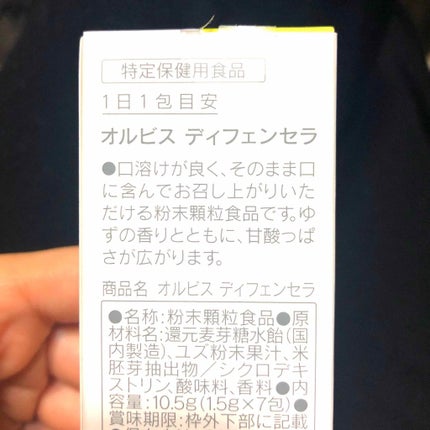 特定保健用食品
1日1包目安
オルビス ディフェンセラ
●口溶けが良く、そのまま口
に含んでお召し上がりいた
だける粉末顆粒食品です。ゆ
ずの香りとともに、甘酸っぱ
さが広がります。
商品名 オルビス ディフェンセラ
●名称:粉末顆粒食品●原
材料名:還元麦芽糖水飴(国
内製造)、ユズ粉末果汁、米
胚芽抽出物／シクロデキ
ストリン、酸味料、香料●内
容量:10.5g(1.5g×7包)●
賞味期限:枠外下部に記載